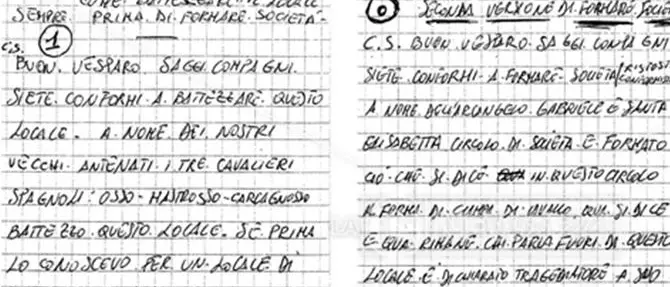 SEMPRE PRIMA DI FORMARE SOCIETÀ-
C.S. 1
BUON VESPARO SAGGI COMPAGNI.
SIETE CONFORMI A BATTEZZARE QUESTO
LOCALE. A NOME DEI NOSTRI
VECCHI ANTENATI I TRE CAVALIERI
SPAGNOLI: OSSO-MASTROSSO-CARCAGNOSSO
BATTEZZO QUESTO LOCALE. SE PRIMA
LO CONOSCEVO PER UN LOCALE DI
0 SECONDA VERSIONE DI FORMARE SOCIE
C.S. BUON VESPARO SAGGI COMPAGNI
SIETE CONFORMI A FORMARE SOCIETÀ
A NOME DELL'ARCANGELO GABRIELE E SANTA
ELISABETTA CIRCOLO DI SOCIETÀ È FORMATO
CIÒ CHE SI DICE IN QUESTO CIRCOLO
A FORMA DI DI CAVALLO, QUA SI DICE
E QUA RIMANE. CHI PARLA FUORI DI QUESTO
LOCALE È DICHIARATO TRAGGEDIATORE A SUO